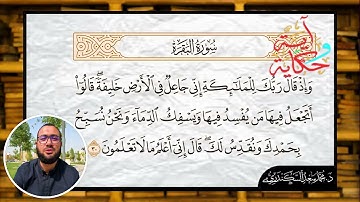 آية
و
حكاية
سُورَةُ البَقَرَةِ
وَإِذْ قَالَ رَبُّكَ لِلْمَلَٰٓئِكَةِ إِنِّى جَاعِلٌ فِى ٱلْأَرْضِ خَلِيفَةً ۖ قَالُوٓا۟
أَتَجْعَلُ فِيهَا مَن يُفْسِدُ فِيهَا وَيَسْفِكُ ٱلدِّمَآءَ وَنَحْنُ نُسَبِّحُ
بِحَمْدِكَ وَنُقَدِّسُ لَكَ ۖ قَالَ إِنِّىٓ أَعْلَمُ مَا لَا تَعْلَمُونَ ٣٠